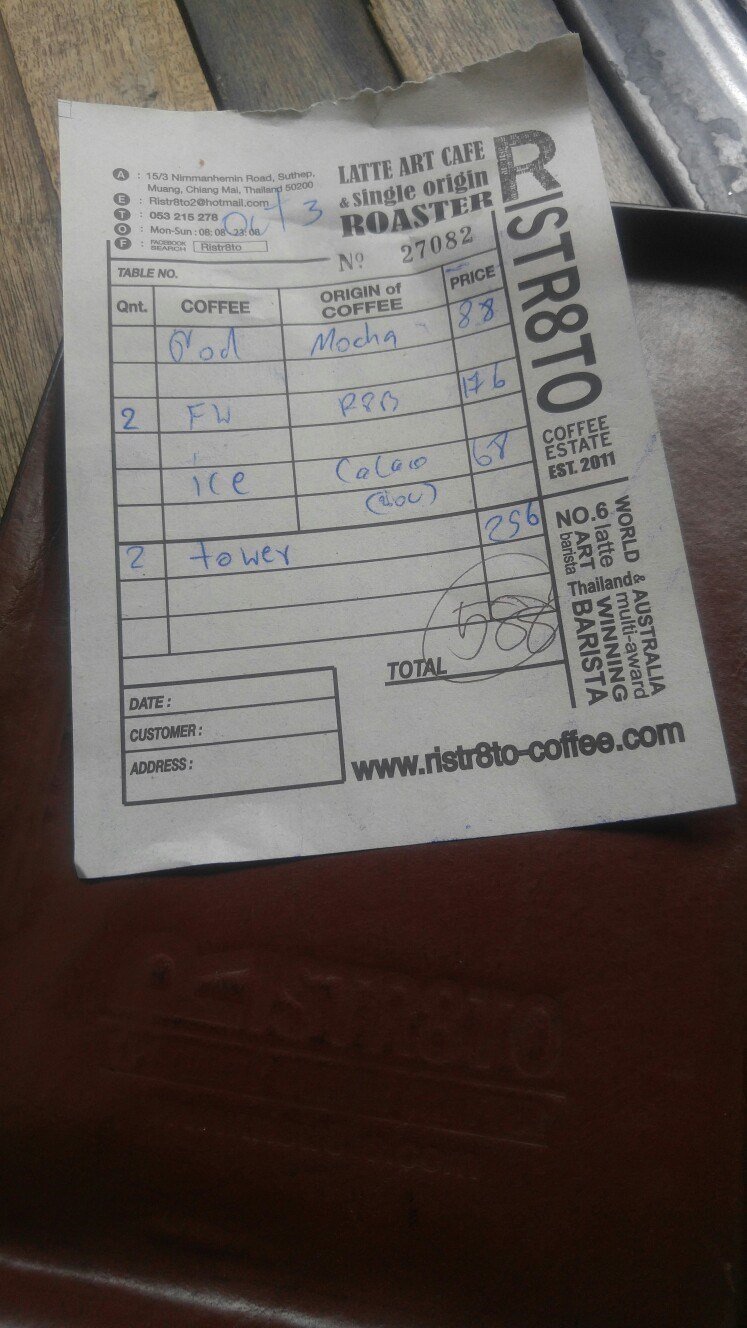 A : 15/3 Nimmanhemin Road, Suthep,
Muang, Chiang Mai, Thailand 50200
E : Ristr8to2@hotmail.com
T : 053 215 278
O : Mon-Sun : 08:08 -23:08
F : FACEBOOK SEARCH Ristr8to
out 3
LATTE ART CAFE
& single origin
ROASTER
Nº 27082
RISTR8TO
COFFEE
ESTATE
EST. 2011
TABLE NO.
Qnt. COFFEE ORIGIN of COFFEE PRICE
Mocha 88
2 FW R8B 176
ice Cacao 68
2 tower 256
588
TOTAL
NO.6 latte
ART barista
Thailand &
WORLD & AUSTRALIA
multi-award
WINNING
BARISTA
DATE :
CUSTOMER :
ADDRESS :
www.ristr8to-coffee.com